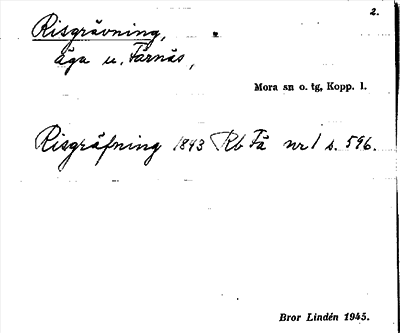 2.
Risgrävning,
äga u. Färnäs,
Mora sn o. tg, Kopp. l.
Risgräfning 1843 Rb Fä nr 1 s. 596.
Bror Lindén 1945.